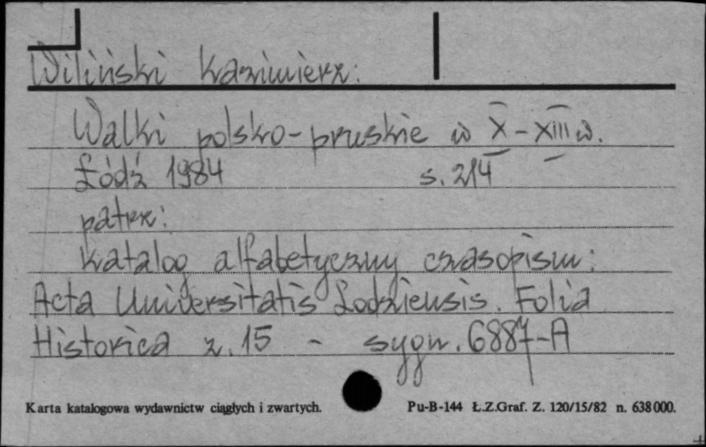 Wiliński Kazimierz:
Walki polsko-pruskie w X-XIII w.
Łódź 1984 s. 214
patrz:
katalog alfabetyczny czasopism:
Acta Universitatis Lodziensis. Folia
Historica z. 15 - sygn. 6887-A
Karta katalogowa wydawnictw ciągłych i zwartych. Pu-B-144 Ł.Z.Graf. Z. 120/15/82 n. 638000.